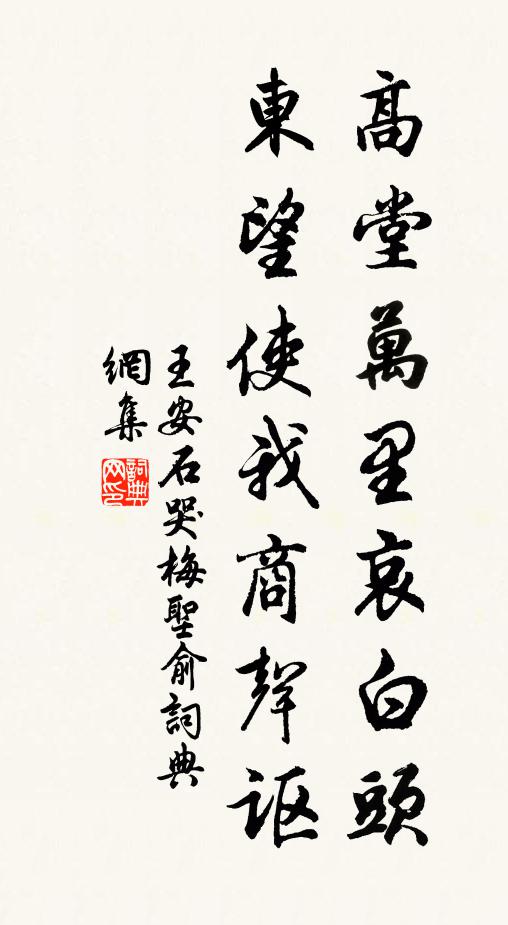 高堂萬里哀白頭
東望使我商聲謳
王安石哭梅聖俞詞典
網集
詞典网印